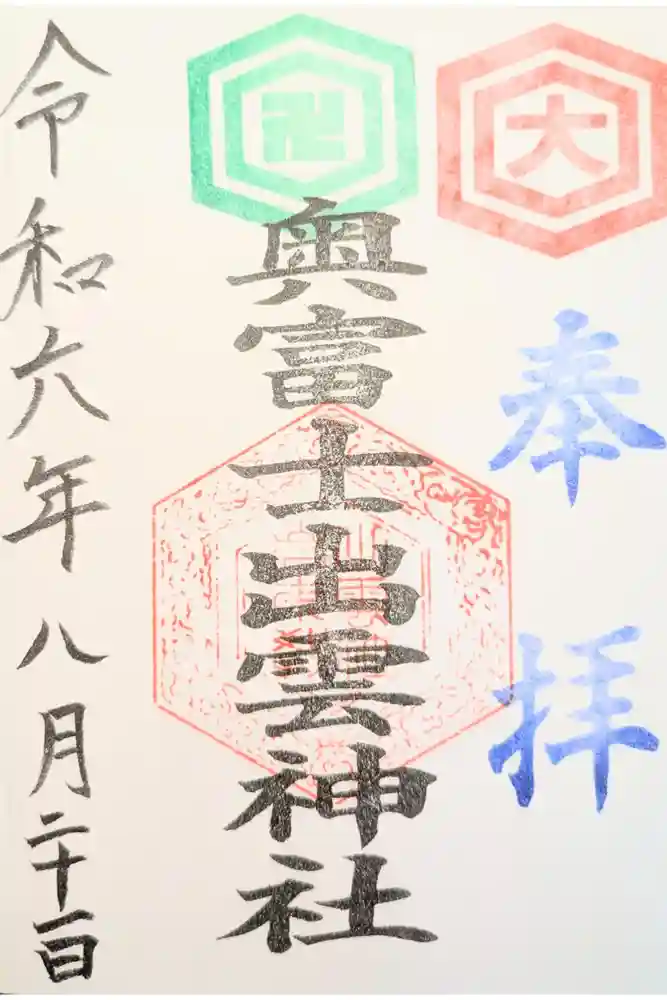 大
奉拝
卍
奥富士出雲神社
令和六年八月二十一日